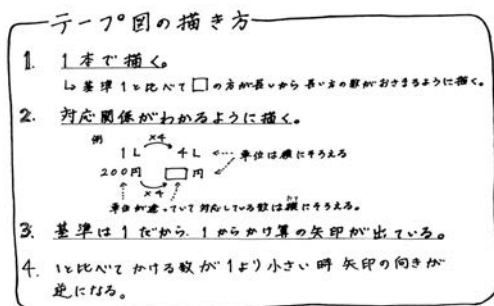 テープ図の描き方
1. 1本で描く。
↳ 基準1と比べて□の方が長いから長い方の数がおさまるように描く。
2. 対応関係がわかるように描く。
例
×4
1L 4L ←… 単位は横にそろえる
200円 □円
×4
単位が違っていて対応している数は縦にそろえる。
3. 基準は1だから、1からかけ算の矢印が出ている。
4. 1と比べてかける数が1より小さい時 矢印の向きが
逆になる。